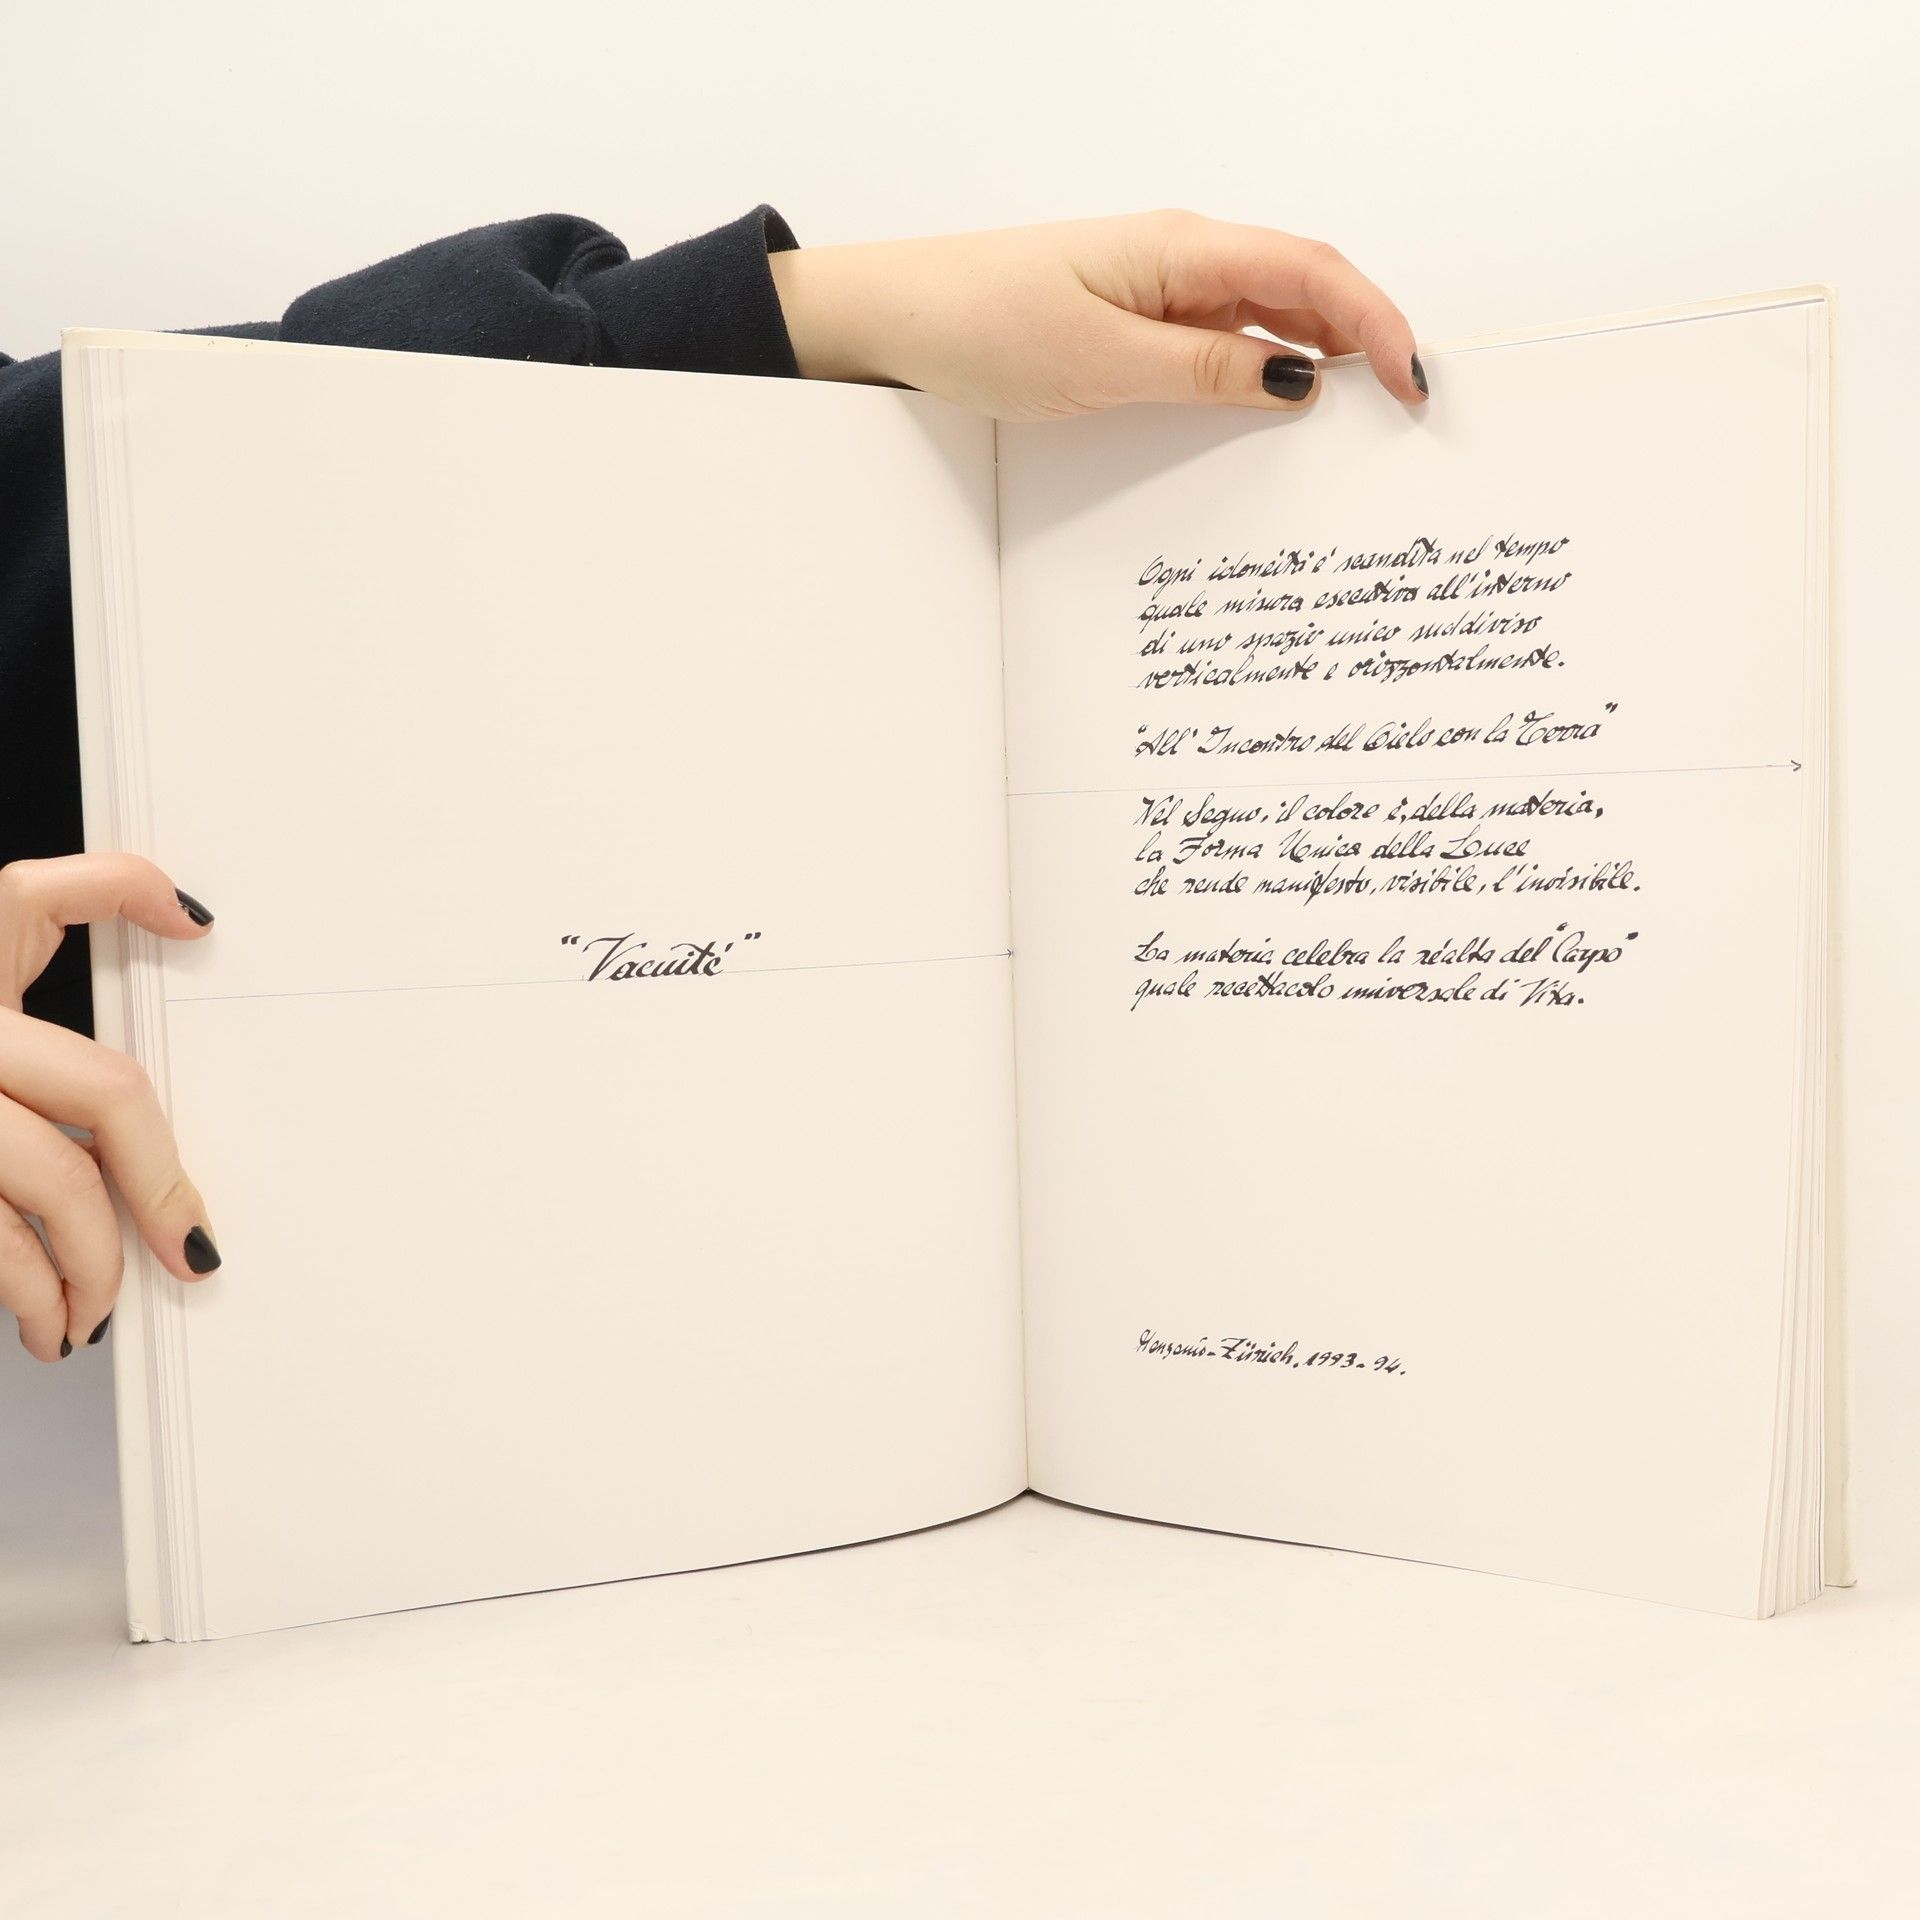 "Vacuité"
Ogni idoneità è scandita nel tempo
quale misura esecutiva all'interno
di uno spazio unico suddiviso
verticalmente e orizzontalmente.
"All' Incontro del Cielo con la Terra"
Nel Segno, il colore è, della materia,
la Forma Unica della Luce
che rende manifesto, visibile, l'invisibile.
La materia celebra la réalta del "Corpo"
quale recettacolo universale di Vita.
Zürich, 1993-94.